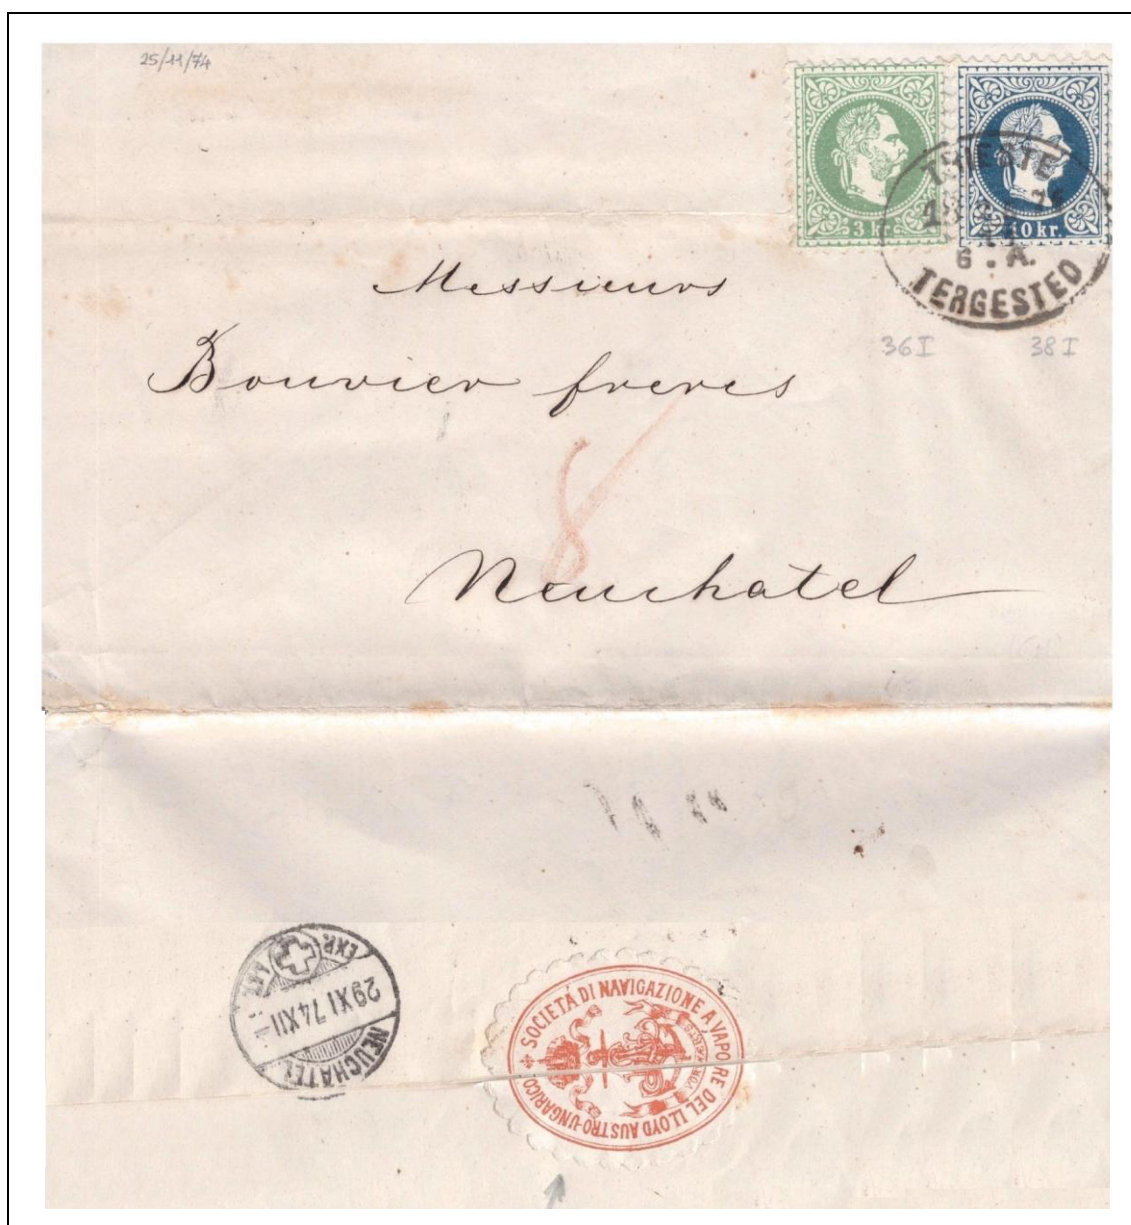 25/11/74
3 kr.
10 kr.
TRIESTE
74
6 . A.
TERGESTEO
36 I
38 I
Messieurs
Bouvier freres
8
Neuchatel
EXP.
29 XI 74 XII
NEUCHATEL
SOCIETÁ DI NAVIGAZIONE A VAPORE DEL LLOYD AUSTRO-UNGARICO